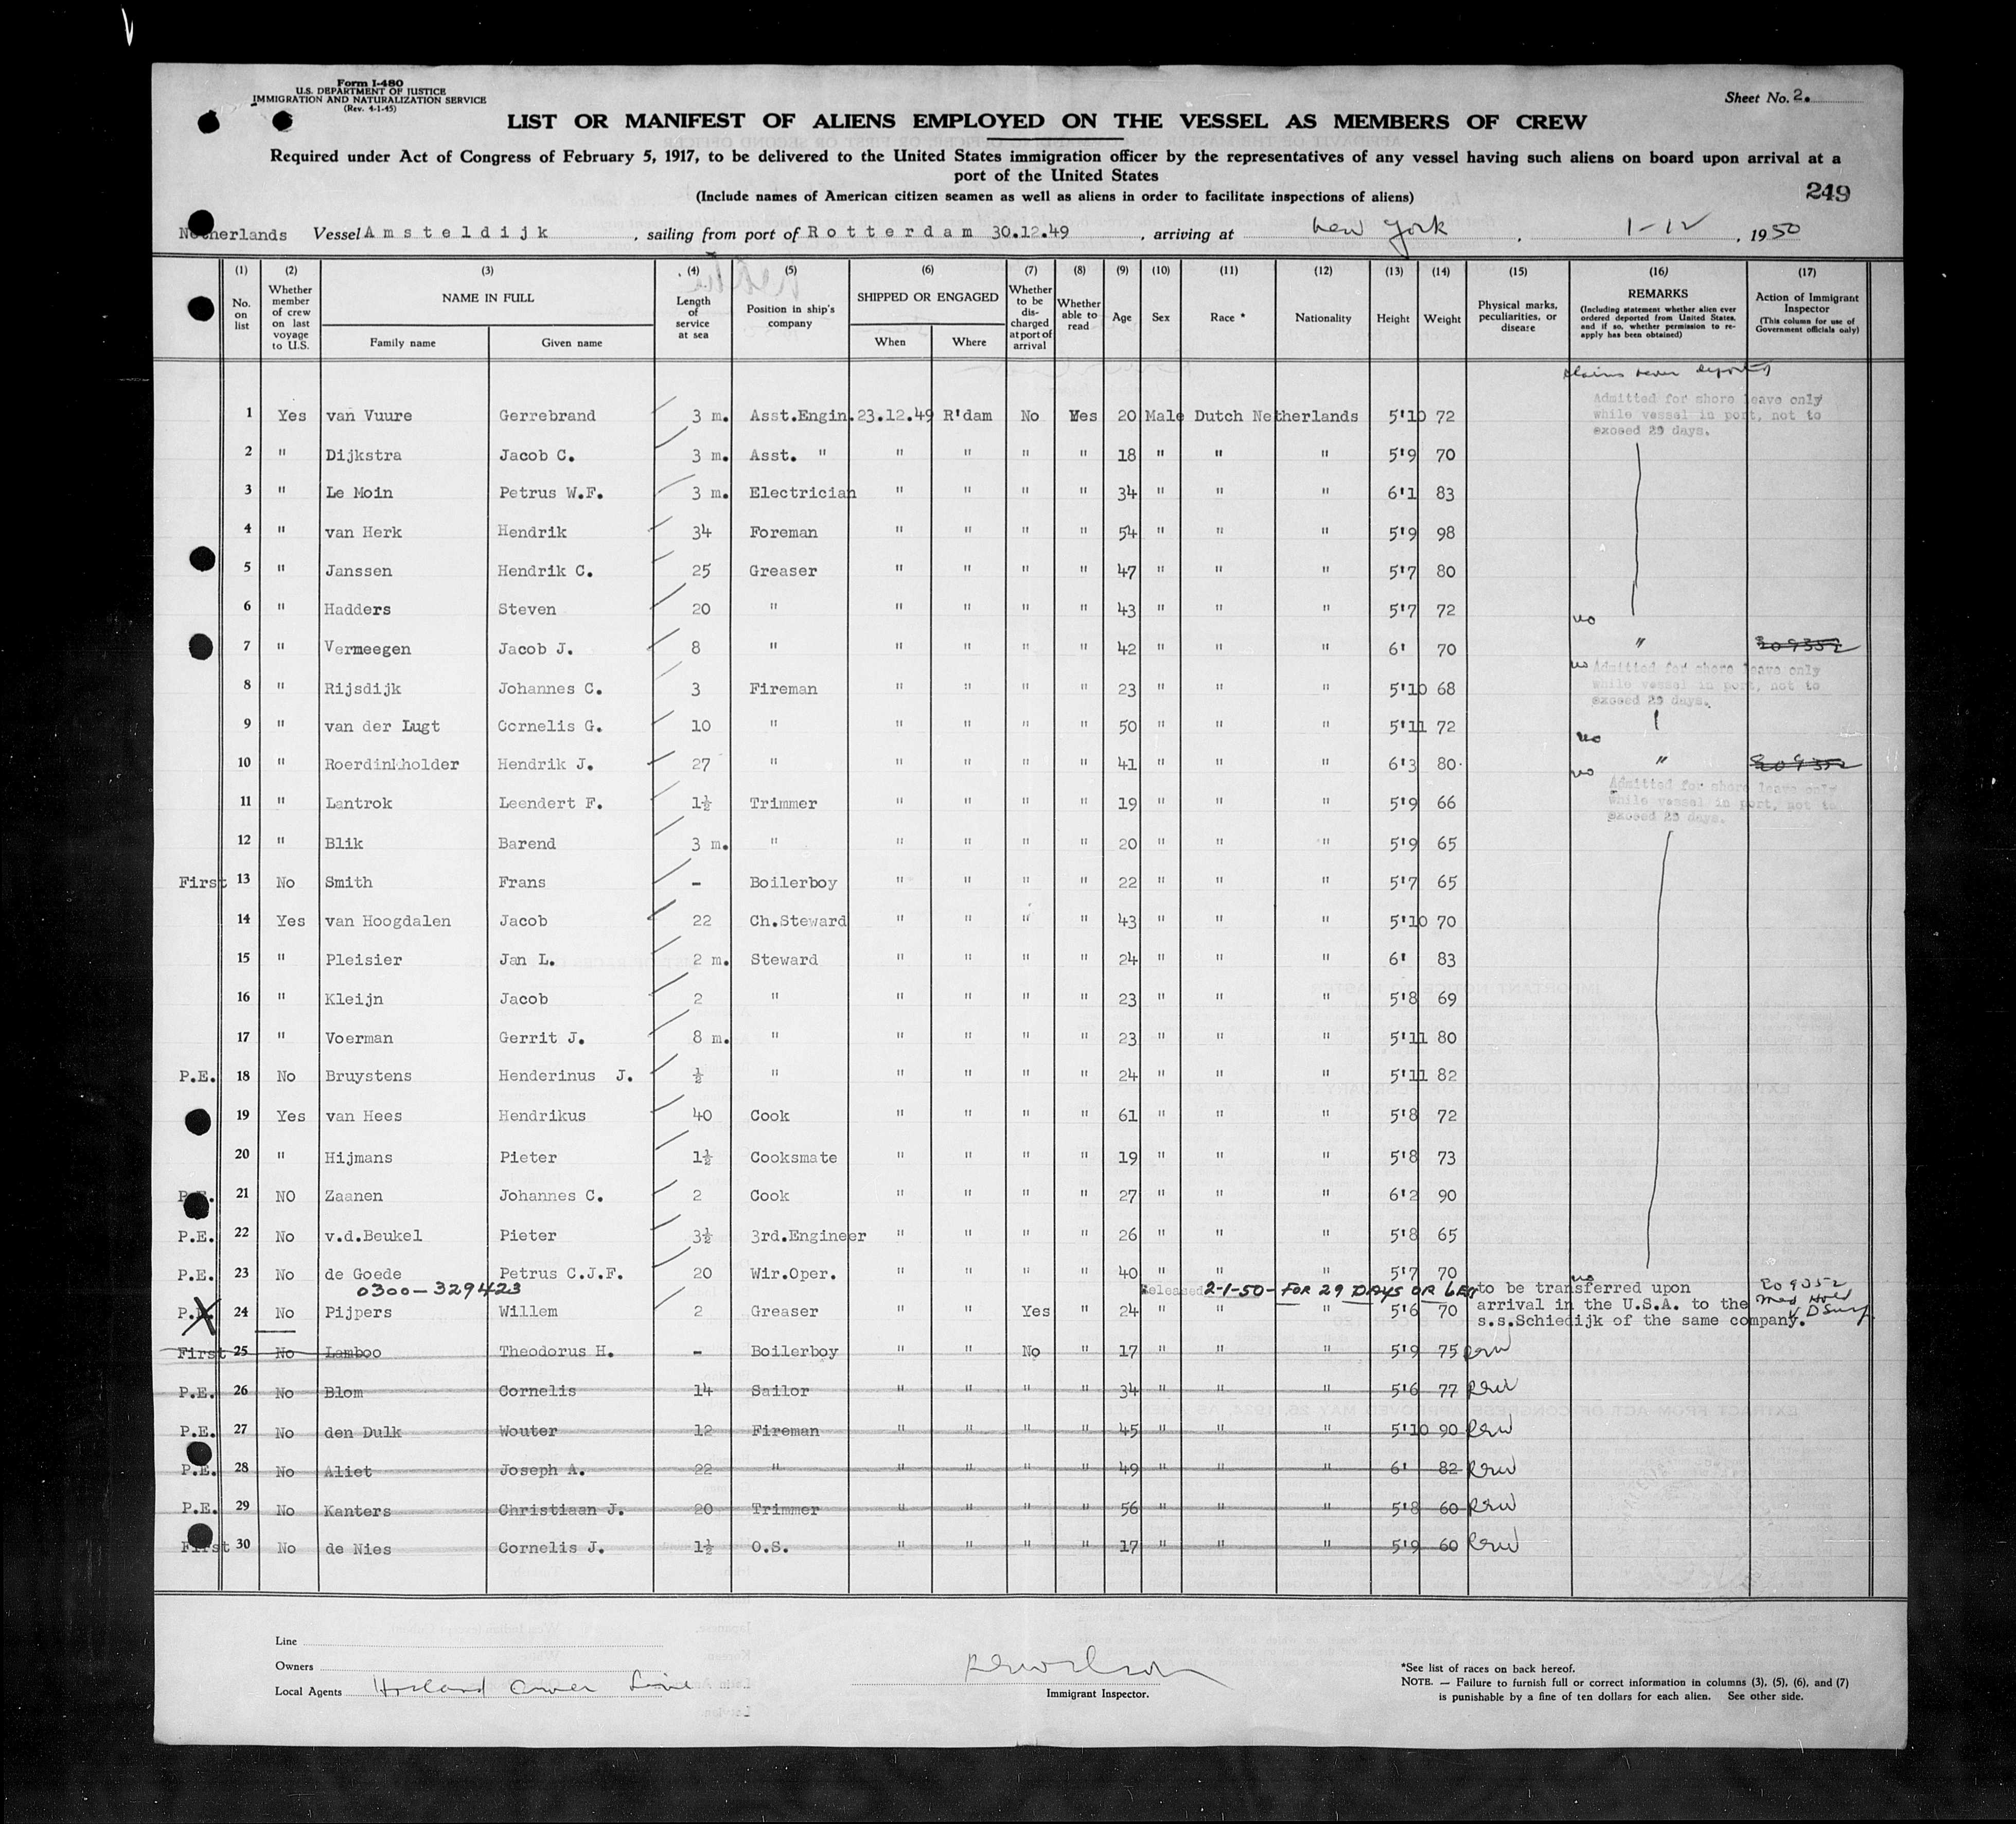 Form I-480
U.S. DEPARTMENT OF JUSTICE
IMMIGRATION AND NATURALIZATION SERVICE
(Rev. 4-1-45)
Sheet No. 2.
LIST OR MANIFEST OF ALIENS EMPLOYED ON THE VESSEL AS MEMBERS OF CREW
Required under Act of Congress of February 5, 1917, to be delivered to the United States immigration officer by the representatives of any vessel having such aliens on board upon arrival at a
port of the United States
(Include names of American citizen seamen as well as aliens in order to facilitate inspections of aliens)
249
Netherlands Vessel Amsteldijk, sailing from port of Rotterdam 30.12.49, arriving at New York, 1-12, 1950
(1) (2) (3) (4) (5) (6) (7) (8) (9) (10) (11) (12) (13) (14) (15) (16) (17)
No. on list
Whether member of crew on last voyage to U.S.
NAME IN FULL
Family name
Given name
Length of service at sea
Position in ship's company
SHIPPED OR ENGAGED
When
Where
Whether to be discharged at port of arrival
Whether able to read
Age
Sex
Race *
Nationality
Height
Weight
Physical marks, peculiarities, or disease
REMARKS
(Including statement whether alien ever ordered deported from United States, and if so, whether permission to reapply has been obtained)
Action of Immigrant Inspector
(This column for use of Government officials only)
Claims never deported
1 Yes van Vuure Gerrebrand 3 m. Asst.Engin. 23.12.49 R'dam No Yes 20 Male Dutch Netherlands 5'10 72 Admitted for shore leave only while vessel in port, not to exceed 29 days.
2 " Dijkstra Jacob C. 3 m. Asst. " " " " " 18 " " " 5'9 70
3 " Le Moin Petrus W.F. 3 m. Electrician " " " " 34 " " " 6'1 83
4 " van Herk Hendrik 34 Foreman " " " " 54 " " " 5'9 98
5 " Janssen Hendrik C. 25 Greaser " " " " 47 " " " 5'7 80
6 " Hadders Steven 20 " " " " " 43 " " " 5'7 72
no
7 " Vermeegen Jacob J. 8 " " " " " 42 " " " 6' 70 " 209352
no
8 " Rijsdijk Johannes C. 3 Fireman " " " " 23 " " " 5'10 68 Admitted for shore leave only while vessel in port, not to exceed 29 days.
9 " van der Lugt Cornelis G. 10 " " " " " 50 " " " 5'11 72
no
10 " Roerdinkholder Hendrik J. 27 " " " " " 41 " " " 6'3 80 " 209352
no
11 " Lantrok Leendert F. 1½ Trimmer " " " " 19 " " " 5'9 66 Admitted for shore leave only while vessel in port, not to exceed 29 days.
12 " Blik Barend 3 m. " " " " " 20 " " " 5'9 65
First 13 No Smith Frans - Boilerboy " " " " 22 " " " 5'7 65
14 Yes van Hoogdalen Jacob 22 Ch.Steward " " " " 43 " " " 5'10 70
15 " Pleisier Jan L. 2 m. Steward " " " " 24 " " " 6' 83
16 " Kleijn Jacob 2 " " " " " 23 " " " 5'8 69
17 " Voerman Gerrit J. 8 m. " " " " " 23 " " " 5'11 80
P.E. 18 No Bruystens Henderinus J. ½ " " " " " 24 " " " 5'11 82
19 Yes van Hees Hendrikus 40 Cook " " " " 61 " " " 5'8 72
20 " Hijmans Pieter 1½ Cooksmate " " " " 19 " " " 5'8 73
P.E. 21 NO Zaanen Johannes C. 2 Cook " " " " 27 " " " 6'2 90
P.E. 22 No v.d.Beukel Pieter 3½ 3rd.Engineer " " " " 26 " " " 5'8 65
P.E. 23 No de Goede Petrus C.J.F. 20 Wir.Oper. " " " " 40 " " " 5'7 70
0300-329423 Released 2-1-50- FOR 29 DAYS OR LESS no
P.E. 24 No Pijpers Willem 2 Greaser " " Yes " 24 " " " 5'6 70 to be transferred upon arrival in the U.S.A. to the s.s.Schiedijk of the same company. 209352 Med Hold
First 25 No Lamboo Theodorus H. - Boilerboy " " No " 17 " " " 5'9 75 RRW
P.E. 26 No Blom Cornelis 14 Sailor " " " " 34 " " " 5'6 77 RRW
P.E. 27 No den Dulk Wouter 12 Fireman " " " " 45 " " " 5'10 90 RRW
P.E. 28 No Aliet Joseph A. 22 " " " " " 49 " " " 6' 82 RRW
P.E. 29 No Kanters Christiaan J. 20 Trimmer " " " " 56 " " " 5'8 60 RRW
First 30 No de Nies Cornelis J. 1½ O.S. " " " " 17 " " " 5'9 60 RRW
Line
Owners
Local Agents Holland Amer Line
Immigrant Inspector.
*See list of races on back hereof.
NOTE. — Failure to furnish full or correct information in columns (3), (5), (6), and (7)
is punishable by a fine of ten dollars for each alien. See other side.